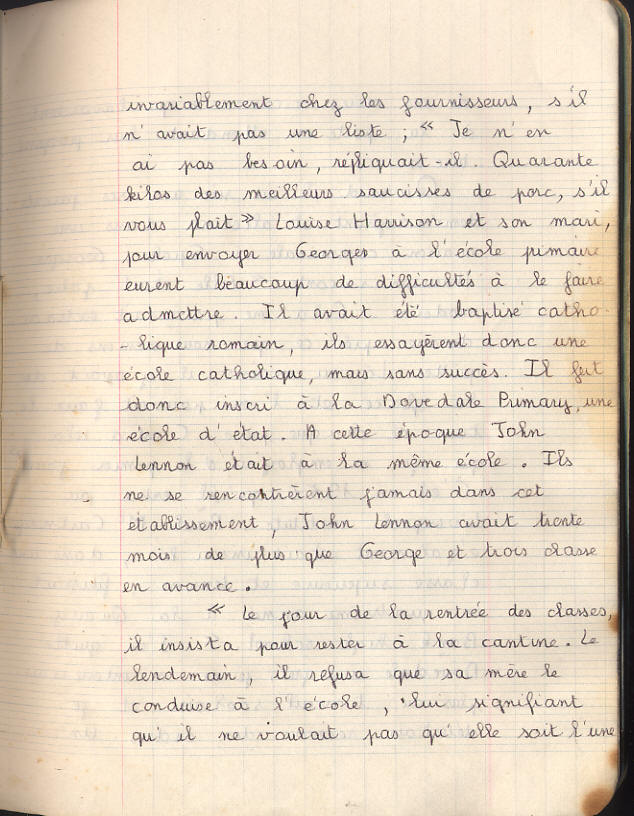 invariablement chez les fournisseurs, s'il
n'avait pas une liste ; « Je n'en
ai pas besoin, répliquait-il. Quarante
kilos des meilleurs saucisses de porc, s'il
vous plait » Louise Harrison et son mari,
pour envoyer Georges à l'école pimaire
eurent beaucoup de difficultés à le faire
admettre. Il avait été baptisé catho-
-lique romain, ils essayèrent donc une
école catholique, mais sans succès. Il fut
donc inscri à la Dovedale Primary, une
école d'état. A cette époque John
Lennon était à la même école. Ils
ne se rencontrèrent jamais dans cet
etablissement, John Lennon avait trente
mois de plus que George et trois classe
en avance.
« Le jour de la rentrée des classes,
il insista pour rester à la cantine. Le
lendemain, il refusa que sa mère le
conduise à l'école, lui signifiant
qu'il ne voulait pas qu'elle soit l'une